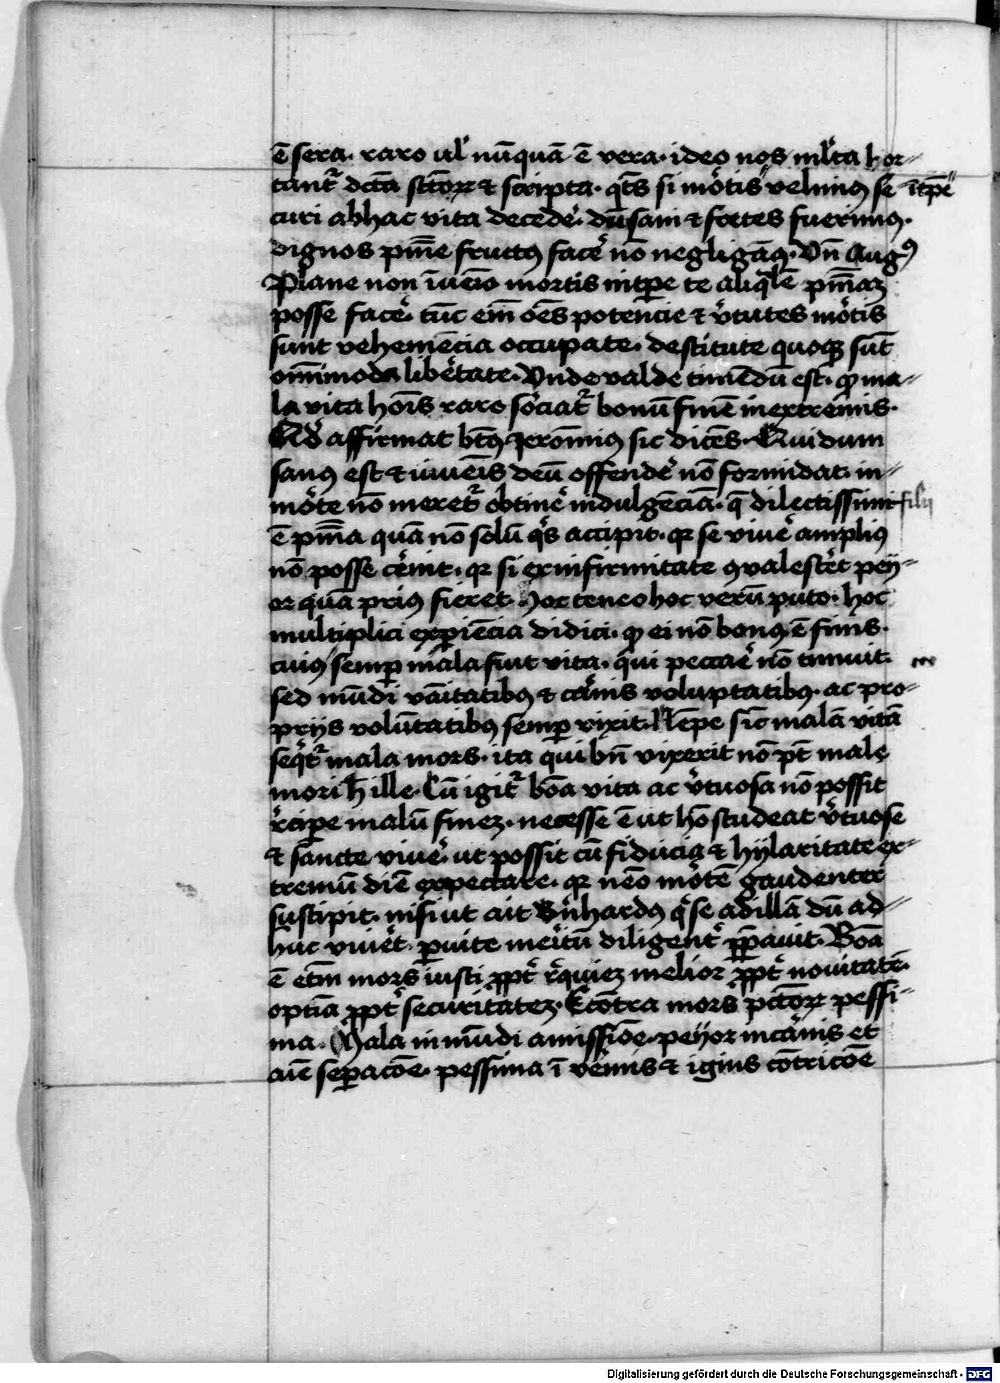 ē sera. raro ul' nūquā ē vera. ideo nos ml'ta hor-
tant᷑ dcā scōꝝ ⁊ scripta. qt᷑s si mōtis velimꝰ se- ītp̄e
curi abhac vita decede᷑. dū sani ⁊ fortes fuerimꝰ.
dignos pn̄ie fructꝰ face᷑ nō negligāꝰ. Vn̄ Augꝰ
Plane non īuēio mortis int̄pe te aliq̄lē pn̄iaꝫ
posse face᷑. tūc em̄ oēs potencie ⁊ v᷑tutes mo᷑tis
sunt vehemēcia occupate. destitute quoqꝫ sūt
om̄imoda libe᷑tate. Vnde valde timēdū est. ꝙ ma-
la vita hoīs raro sociat᷑ bonū finē in extremis.
Qd᷑ affirmat bt̄ꝰ Jeronimꝰ sic dicēs. Qui dum
sanꝰ est ⁊ iuuēis deū offende᷑ nō formidat. in
mo᷑te nō meret᷑ obtine᷑ indulgēciā. q̄ dilectissimi filij
ē pn̄ia quā nō solū q᷑s accipit. qꝛ se viue᷑ ampliꝰ
nō posse ce᷑nit. qꝛ si ex infirmitate ꝯualesce᷑t pey-
or quā priꝰ fieret. Hoc teneo hoc verū puto. hoc
multiplici expiēcia didici. ꝙ ei nō bonꝰ ē finis.
cuiꝰ semp mala fuit vita. qui peccae᷑ nō timuit.
sed mūdi vāitatibꝰ ⁊ ca᷑nis voluptatibꝰ. ac pro-
prijs volūtatibꝰ semp vixit. Nēpe sic malā vitā
seqt᷑ mala mors. ita qui bn̄ vixerit nō pt̄ male
mori h̄ ille. Cū igit᷑ bōa vita ac v᷑tuosa nō possit
r᷑cipe malū fineꝫ. necesse ē ut hō studeat v᷑tuose
⁊ sancte viue᷑. ut possit cū fiducia ⁊ hylaritate ex-
tremū diē expectare. qꝛ nēo mo᷑tē gaudenter
suscipit. nisi ut ait Bn᷑hardꝰ q᷑ se ad illā dū ad-
huc viue᷑t. p vite meritū diligent᷑ ppauit. Bōa
ē etm̄ mors iusti ꝓpt᷑ r᷑quieꝫ melior ꝓpt᷑ nouitatē.
optīa ꝓpt᷑ securitateꝫ. Ecōtra mors pctōꝝ pessi-
ma. Mala in mūdi amissiōe. peyor in ca᷑nis et
aīe sepacōe. pessima ī v᷑mis ⁊ ignis cōtricōe
Digitalisierung gefördert durch die Deutsche Forschungsgemeinschaft - DFG